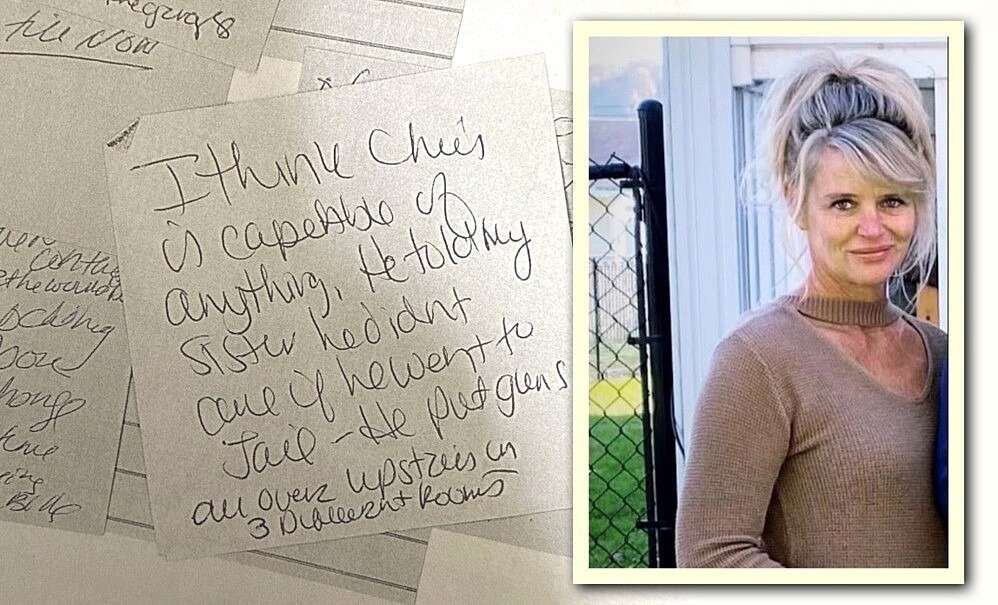 file Now
I think Chris
is capable of
anything, He told my
sister he didnt
care if he went to
Jail - He put guns
all over upstairs in
3 Different Rooms